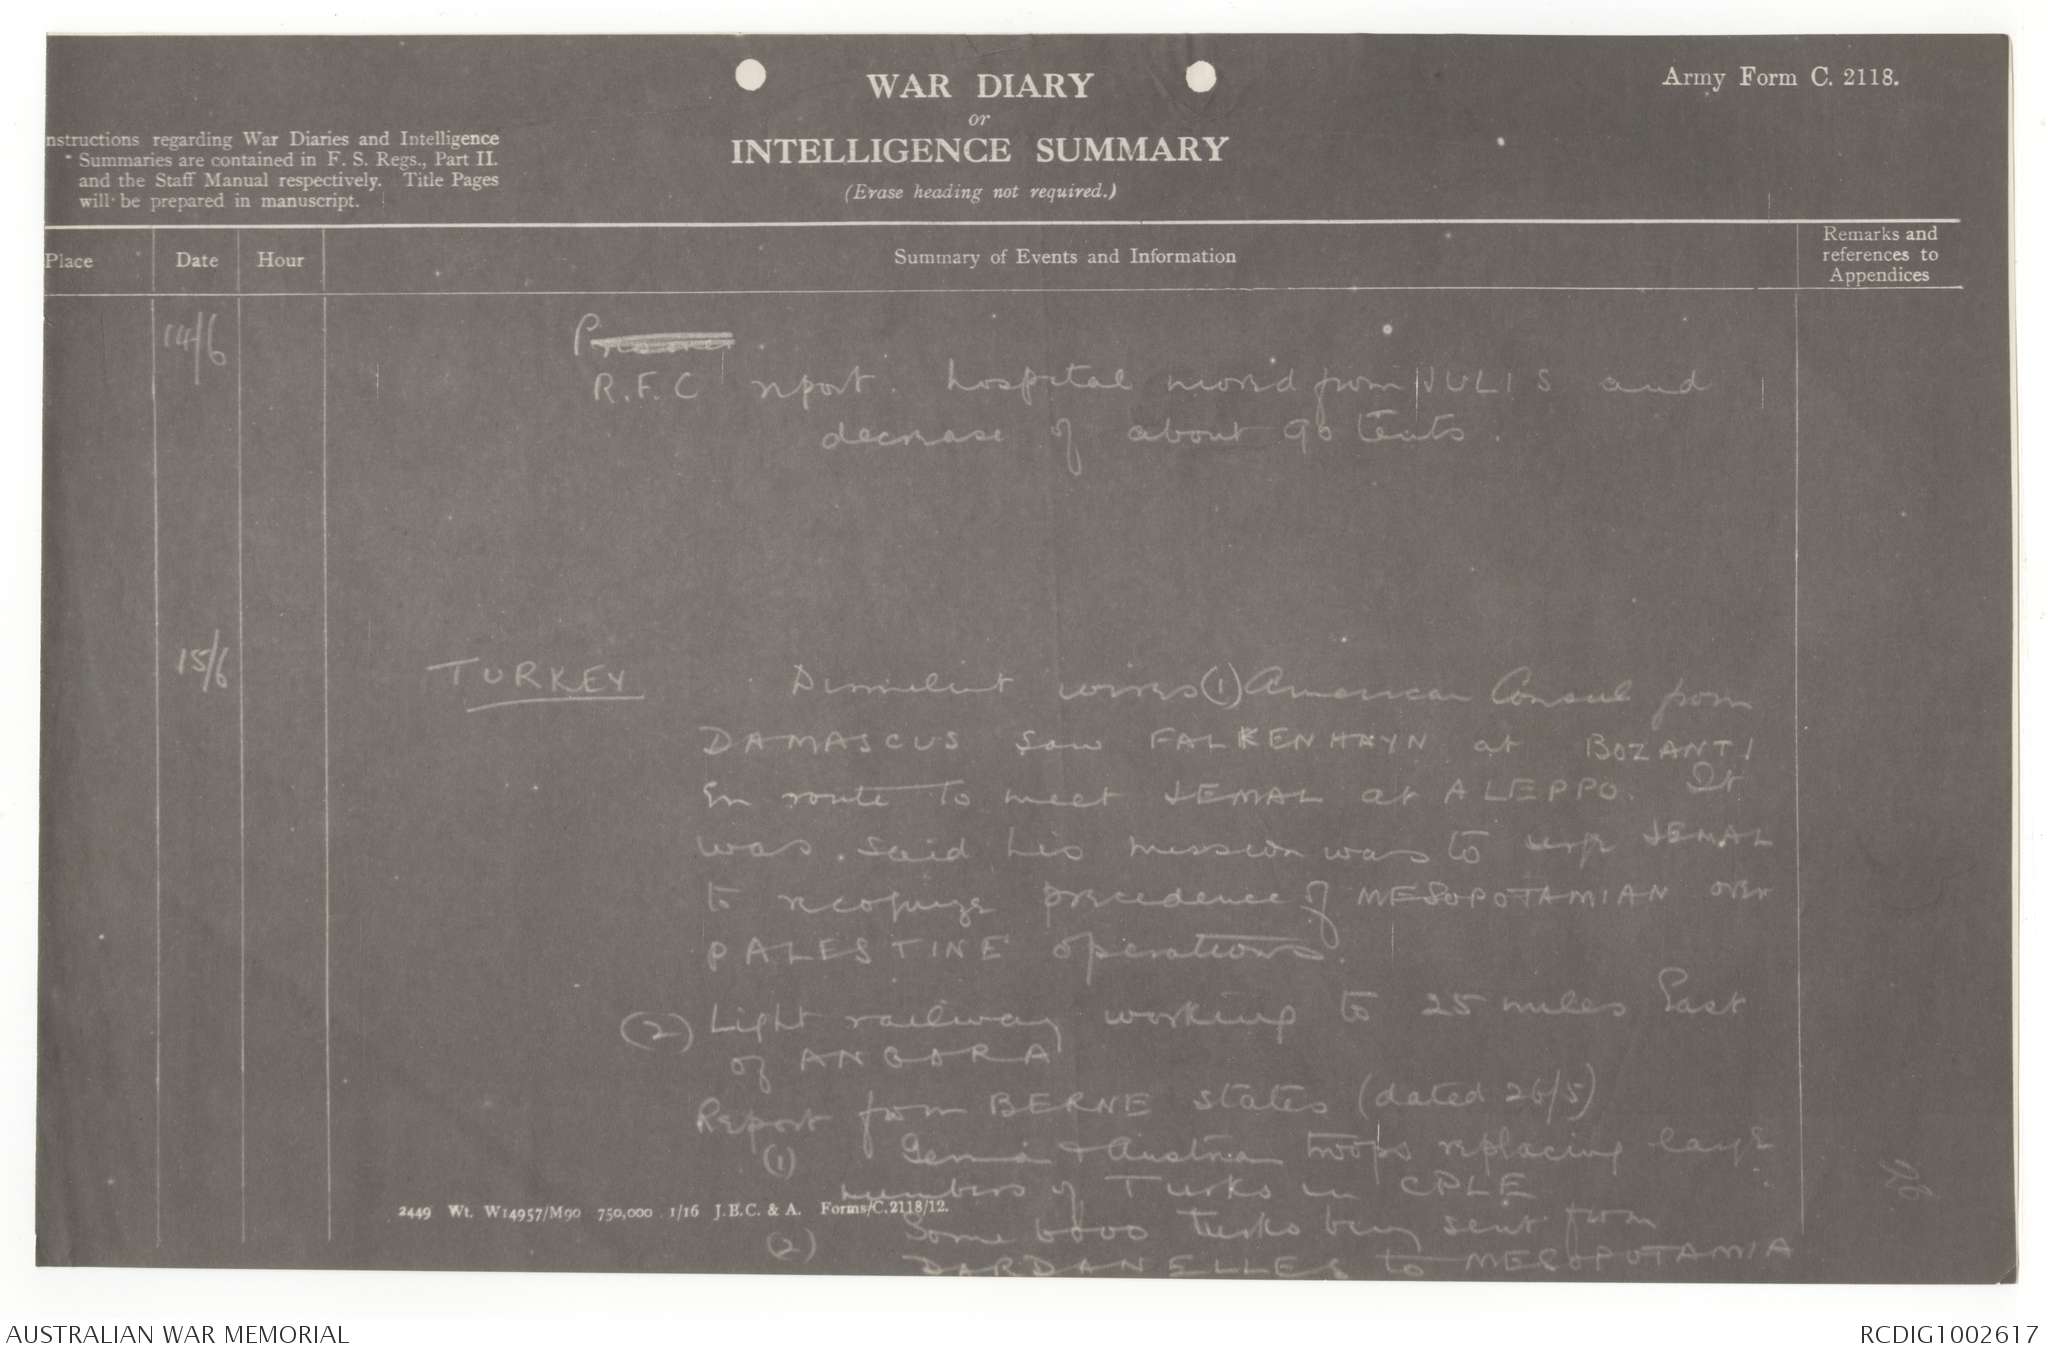 WAR DIARY
or
INTELLIGENCE SUMMARY
(Erase heading not required.)
Army Form C. 2118.
nstructions regarding War Diaries and Intelligence
Summaries are contained in F. S. Regs., Part II.
and the Staff Manual respectively. Title Pages
will be prepared in manuscript.
Place
Date
Hour
Summary of Events and Information
Remarks and
references to
Appendices
14/6
R.F.C report. hospital moved from JULIS and
decrease of about 90 tents.
15/6
TURKEY
wires (1) American Consul from
DAMASCUS saw FALKENHAYN at BOZANTI
en route to meet JEMAL at ALEPPO. It
was said his mission was to urge JEMAL
to recognize precedence of MESOPOTAMIAN over
PALESTINE operations.
(2) Light railway working to 25 miles East
of ANGORA
Report from BERNE states (dated 26/5)
(1) German & Austrian troops replacing large
numbers of Turks in CPLE
2449 Wt. W14957/M90 750,000 1/16 J.B.C. & A. Forms/C.2118/12.
(2) Some 6000 Turks being sent from
DARDANELLES to MESOPOTAMIA
AUSTRALIAN WAR MEMORIAL
RCDIG1002617